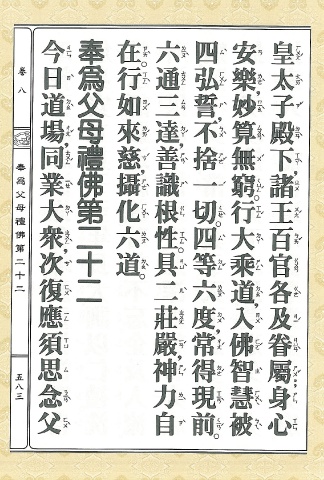 皇太子殿下,諸王百官各及眷屬,身心
安樂,妙算無窮。行大乘道,入佛智慧,被
四弘誓,不捨一切。四等六度,常得現前。
六通三達,善識根性。具二莊嚴,神力自
在。行如來慈,攝化六道。
奉為父母禮佛第二十二
今日道場,同業大眾,次復應須思念父
卷八
奉為父母禮佛第二十二
五八三